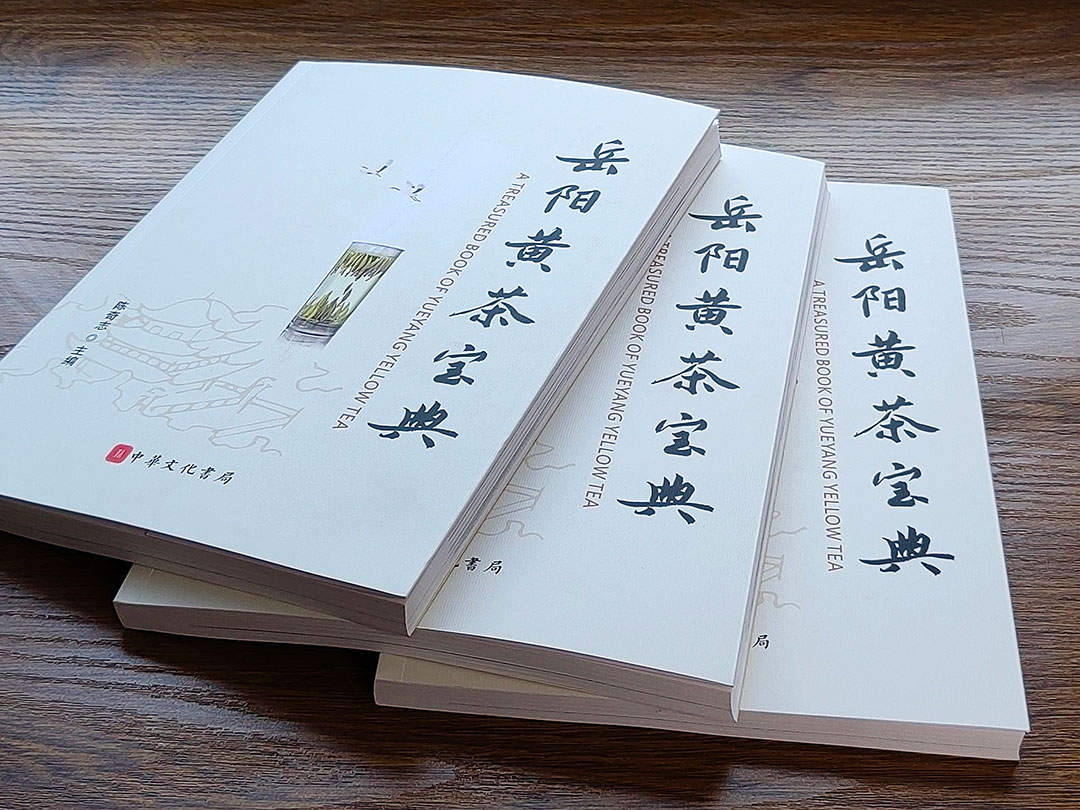 岳阳黄茶宝典
A TREASURED BOOK OF YUEYANG YELLOW TEA
陈奇志 主编
中華文化書局
岳阳黄茶宝典
TREASURED BOOK OF YUEYANG YELLOW TEA
書局
岳阳黄茶宝典
A TREASURED BOOK OF YUEYANG YELLOW TEA
局